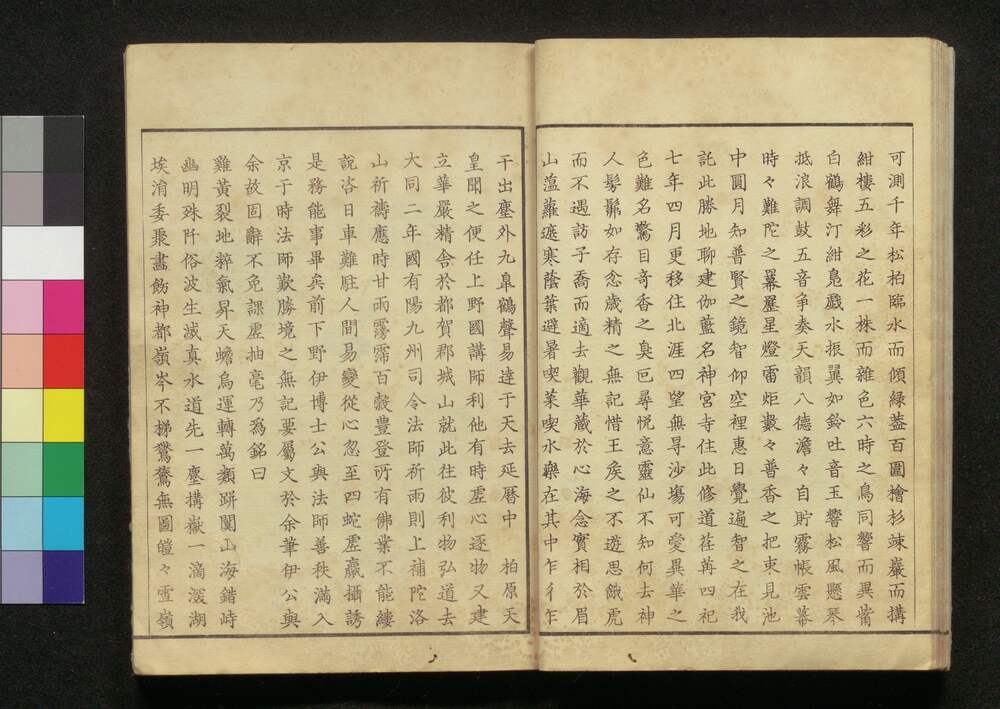 可測千年松柏臨水而傾綠蓋百圍檜杉竦巖而搆
紺樓五彩之花一株而雜色六時之鳥同響而異觜
白鶴舞汀紺鳬戲水振翼如鈴吐音玉響松風懸琴
抵浪調鼓五音爭奏天韻八德澹々自貯霧帳雲幕
時々難陀之羃歷星燈雷炬數々普香之把束見池
中圓月知普賢之鏡智仰空裡惠日覺遍智之在我
託此勝地聊建伽藍名神宮寺住此修道荏苒四祀
七年四月更移住北涯四望無㝵沙塲可愛異華之
色難名驚目奇香之臭叵尋悅意靈仙不知何去神
人髣髴如存忿歲精之無記惜王矦之不遊思餓虎
而不遇訪子喬而適去觀華藏於心海念實相於眉
山薀蘿遮寒蔭葉避暑喫菜喫水樂在其中乍彳乍
亍出塵外九皐鶴聲易達于天去延曆中 柏原天
皇聞之便任上野國講師利他有時虛心逐物又建
立華嚴精舍於都賀郡城山就此往彼利物弘道去
大同二年國有陽九州司令法師祈雨則上補陀洛
山祈禱應時甘雨霶霈百穀豐登所有佛業不能縷
說咨日車難駐人間易變從心忽至四蛇虛羸攝誘
是務能事畢矣前下野伊博士公與法師善秩滿入
京于時法師歎勝境之無記要屬文於余筆伊公與
余故固辭不免課虛抽毫乃爲銘曰
雞黃裂地粹氣昇天蟾烏運轉萬類跰闐山海錯峙
幽明殊阡俗波生滅真水道先一塵搆嶽一滴湲湖
埃涓委聚畵餝神都嶺岑不梯鸑鷟無圖皚々雪嶺